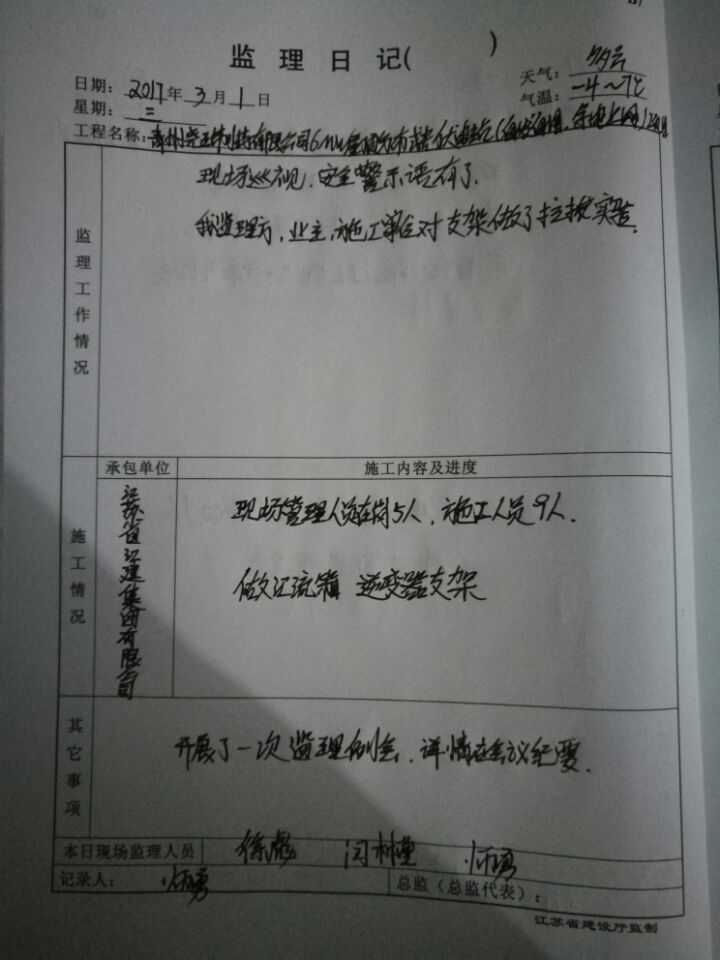 监理日记( )
日期：2017年3月1日
天气：多云
星期：三
气温：-4~7℃
工程名称：有限公司6MW屋顶分布式光伏电站(自发自用，余电上网)
监理工作情况
现场巡视，安全警示语有了.
我监理方，业主，施工单位对支架做了拉拔实验.
施工情况
承包单位
施工内容及进度
江苏省江建集团有限公司
现场管理人员在岗5人，施工人员9人.
做汇流箱 逆变器支架
其它事项
开展了一次监理例会，详情在会议纪要.
本日现场监理人员 徐彪
记录人：
总监（总监代表）：
江苏省建设厅监制